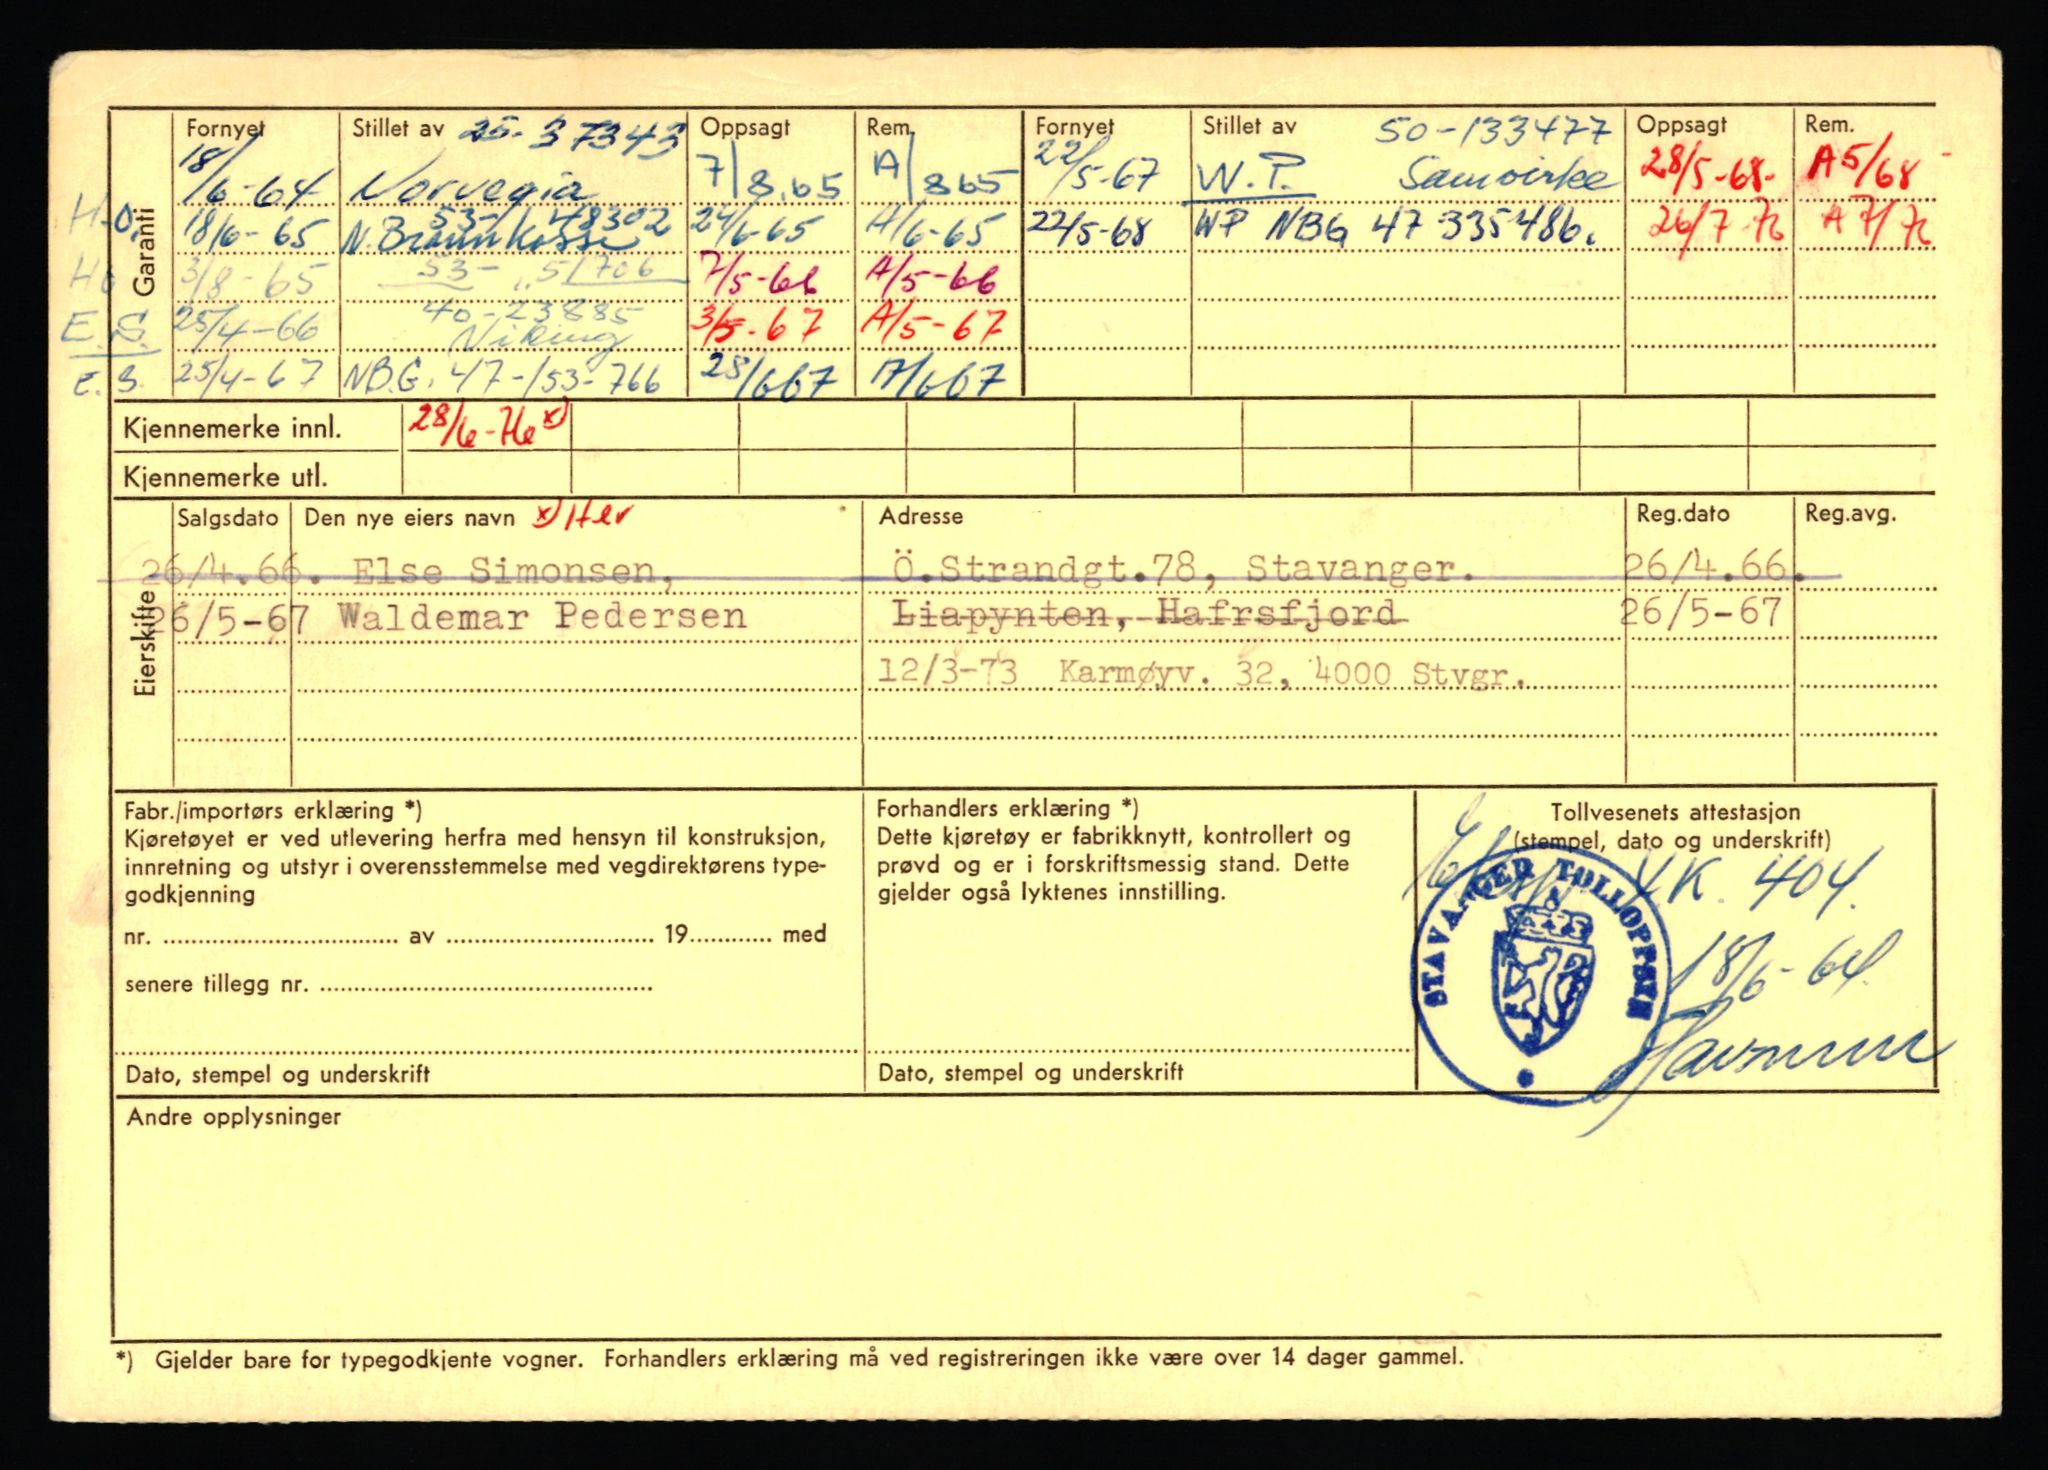 Garanti
Fornyet Stillet av 25-37343 Oppsagt Rem. Fornyet Stillet av 50-133477 Oppsagt Rem.
18/6-64 Norvegia 7/8.65 A/865 22/5-67 W.P. Samvirke 28/5-68- A5/68
H.O. 18/6-65 N.Brannkasse 53-148302 24/6-65 A/6-65 22/5-68 WP NBG 47 335486. 26/7-76 A 7/76
Ho 3/8-65 53- „51706 7/5-66 A/5-66
E.S. 25/4-66 40-23885 Viking 3/5-67 A/5-67
E.S. 25/4-67 NB.G. 47-153-766 28/667 A/667
Kjennemerke innl. 28/6-76 x)
Kjennemerke utl.
Eierskifte
Salgsdato Den nye eiers navn x) Her Adresse Reg.dato Reg.avg.
26/4.66. Else Simonsen, Ö.Strandgt.78, Stavanger. 26/4.66.
26/5-67 Waldemar Pedersen Liapynten, Hafrsfjord 26/5-67
12/3-73 Karmøyv. 32, 4000 Stvgr.
Fabr./importørs erklæring *)
Kjøretøyet er ved utlevering herfra med hensyn til konstruksjon,
innretning og utstyr i overensstemmelse med vegdirektørens type-
godkjenning
nr. ........ av ........ 19........ med
senere tillegg nr. ........
Dato, stempel og underskrift
Forhandlers erklæring *)
Dette kjøretøy er fabrikknytt, kontrollert og
prøvd og er i forskriftsmessig stand. Dette
gjelder også lyktenes innstilling.
Dato, stempel og underskrift
Tollvesenets attestasjon
(stempel, dato og underskrift)
K. 404.
STAVANGER TOLLOPPSYN
18/6-64.
Andre opplysninger
*) Gjelder bare for typegodkjente vogner. Forhandlers erklæring må ved registreringen ikke være over 14 dager gammel.